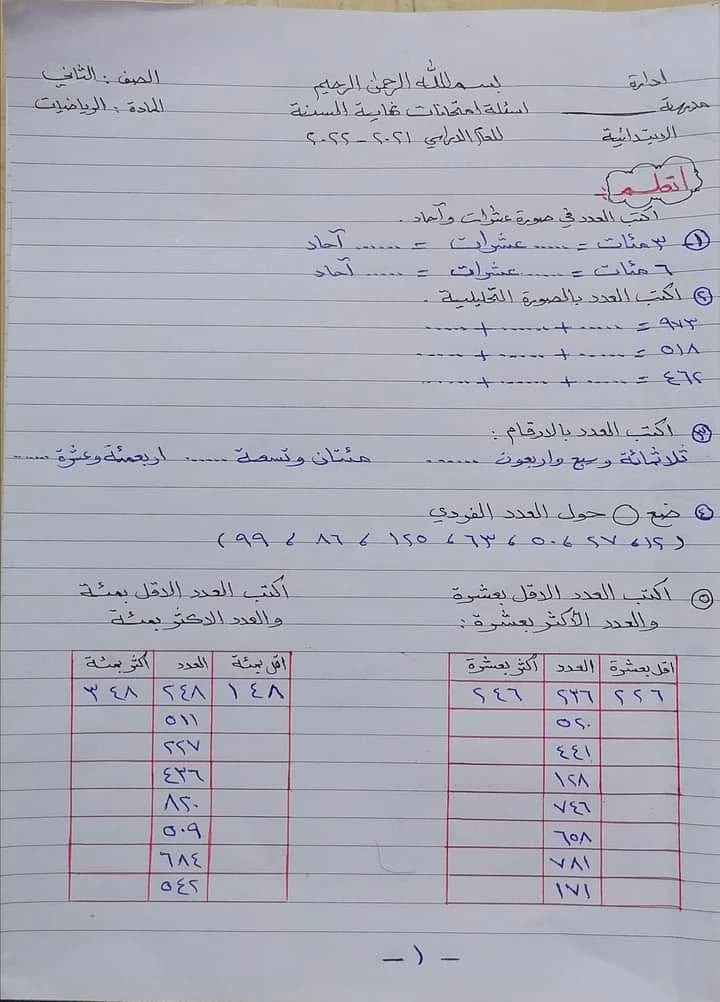 ادارة بسم الله الرحمن الرحيم الصف : الثاني
مديرية ــــــــ اسئلة امتحانات نهاية السنة المادة : الرياضيات
الابتدائية للعام الدراسي ٢٠٢١ - ٢٠٢٢
اتعلم :
اكتب العدد في صورة عشرات وآحاد .
١- ٣ مئات = ...... عشرات = ...... آحاد
٦ مئات = ...... عشرات = ...... آحاد
٢ اكتب العدد بالصورة التحليلية .
٩٧٣ = ...... + ...... + ......
٥١٨ = ...... + ...... + ......
٤٦٢ = ...... + ...... + ......
٣ اكتب العدد بالارقام :
ثلاثمائة وسبع واربعون ...... مئتان وتسعة ...... اربعمئة وعشرة ......
٤ ضع ◯ حول العدد الفردي
( ١٢ ، ٢٧ ، ٥٠ ، ٦٣ ، ١٢٥ ، ٨٦ ، ٩٩ )
٥ اكتب العدد الاقل بعشرة
والعدد الأكثر بعشرة :
اقل بعشرة العدد اكثر بعشرة
٢٢٦ ٢٣٦ ٢٤٦
٥٢٠
٤٤١
١٢٨
٧٤٦
٦٥٨
٧٨١
١٧١
اكتب العدد الاقل بمئة
والعدد الاكثر بمئة
اقل بمئة العدد اكثر بمئة
١٤٨ ٢٤٨ ٣٤٨
٥١١
٢٢٧
٤٣٦
٨٢٠
٥٠٩
٦٨٤
٥٤٢
- ١ -